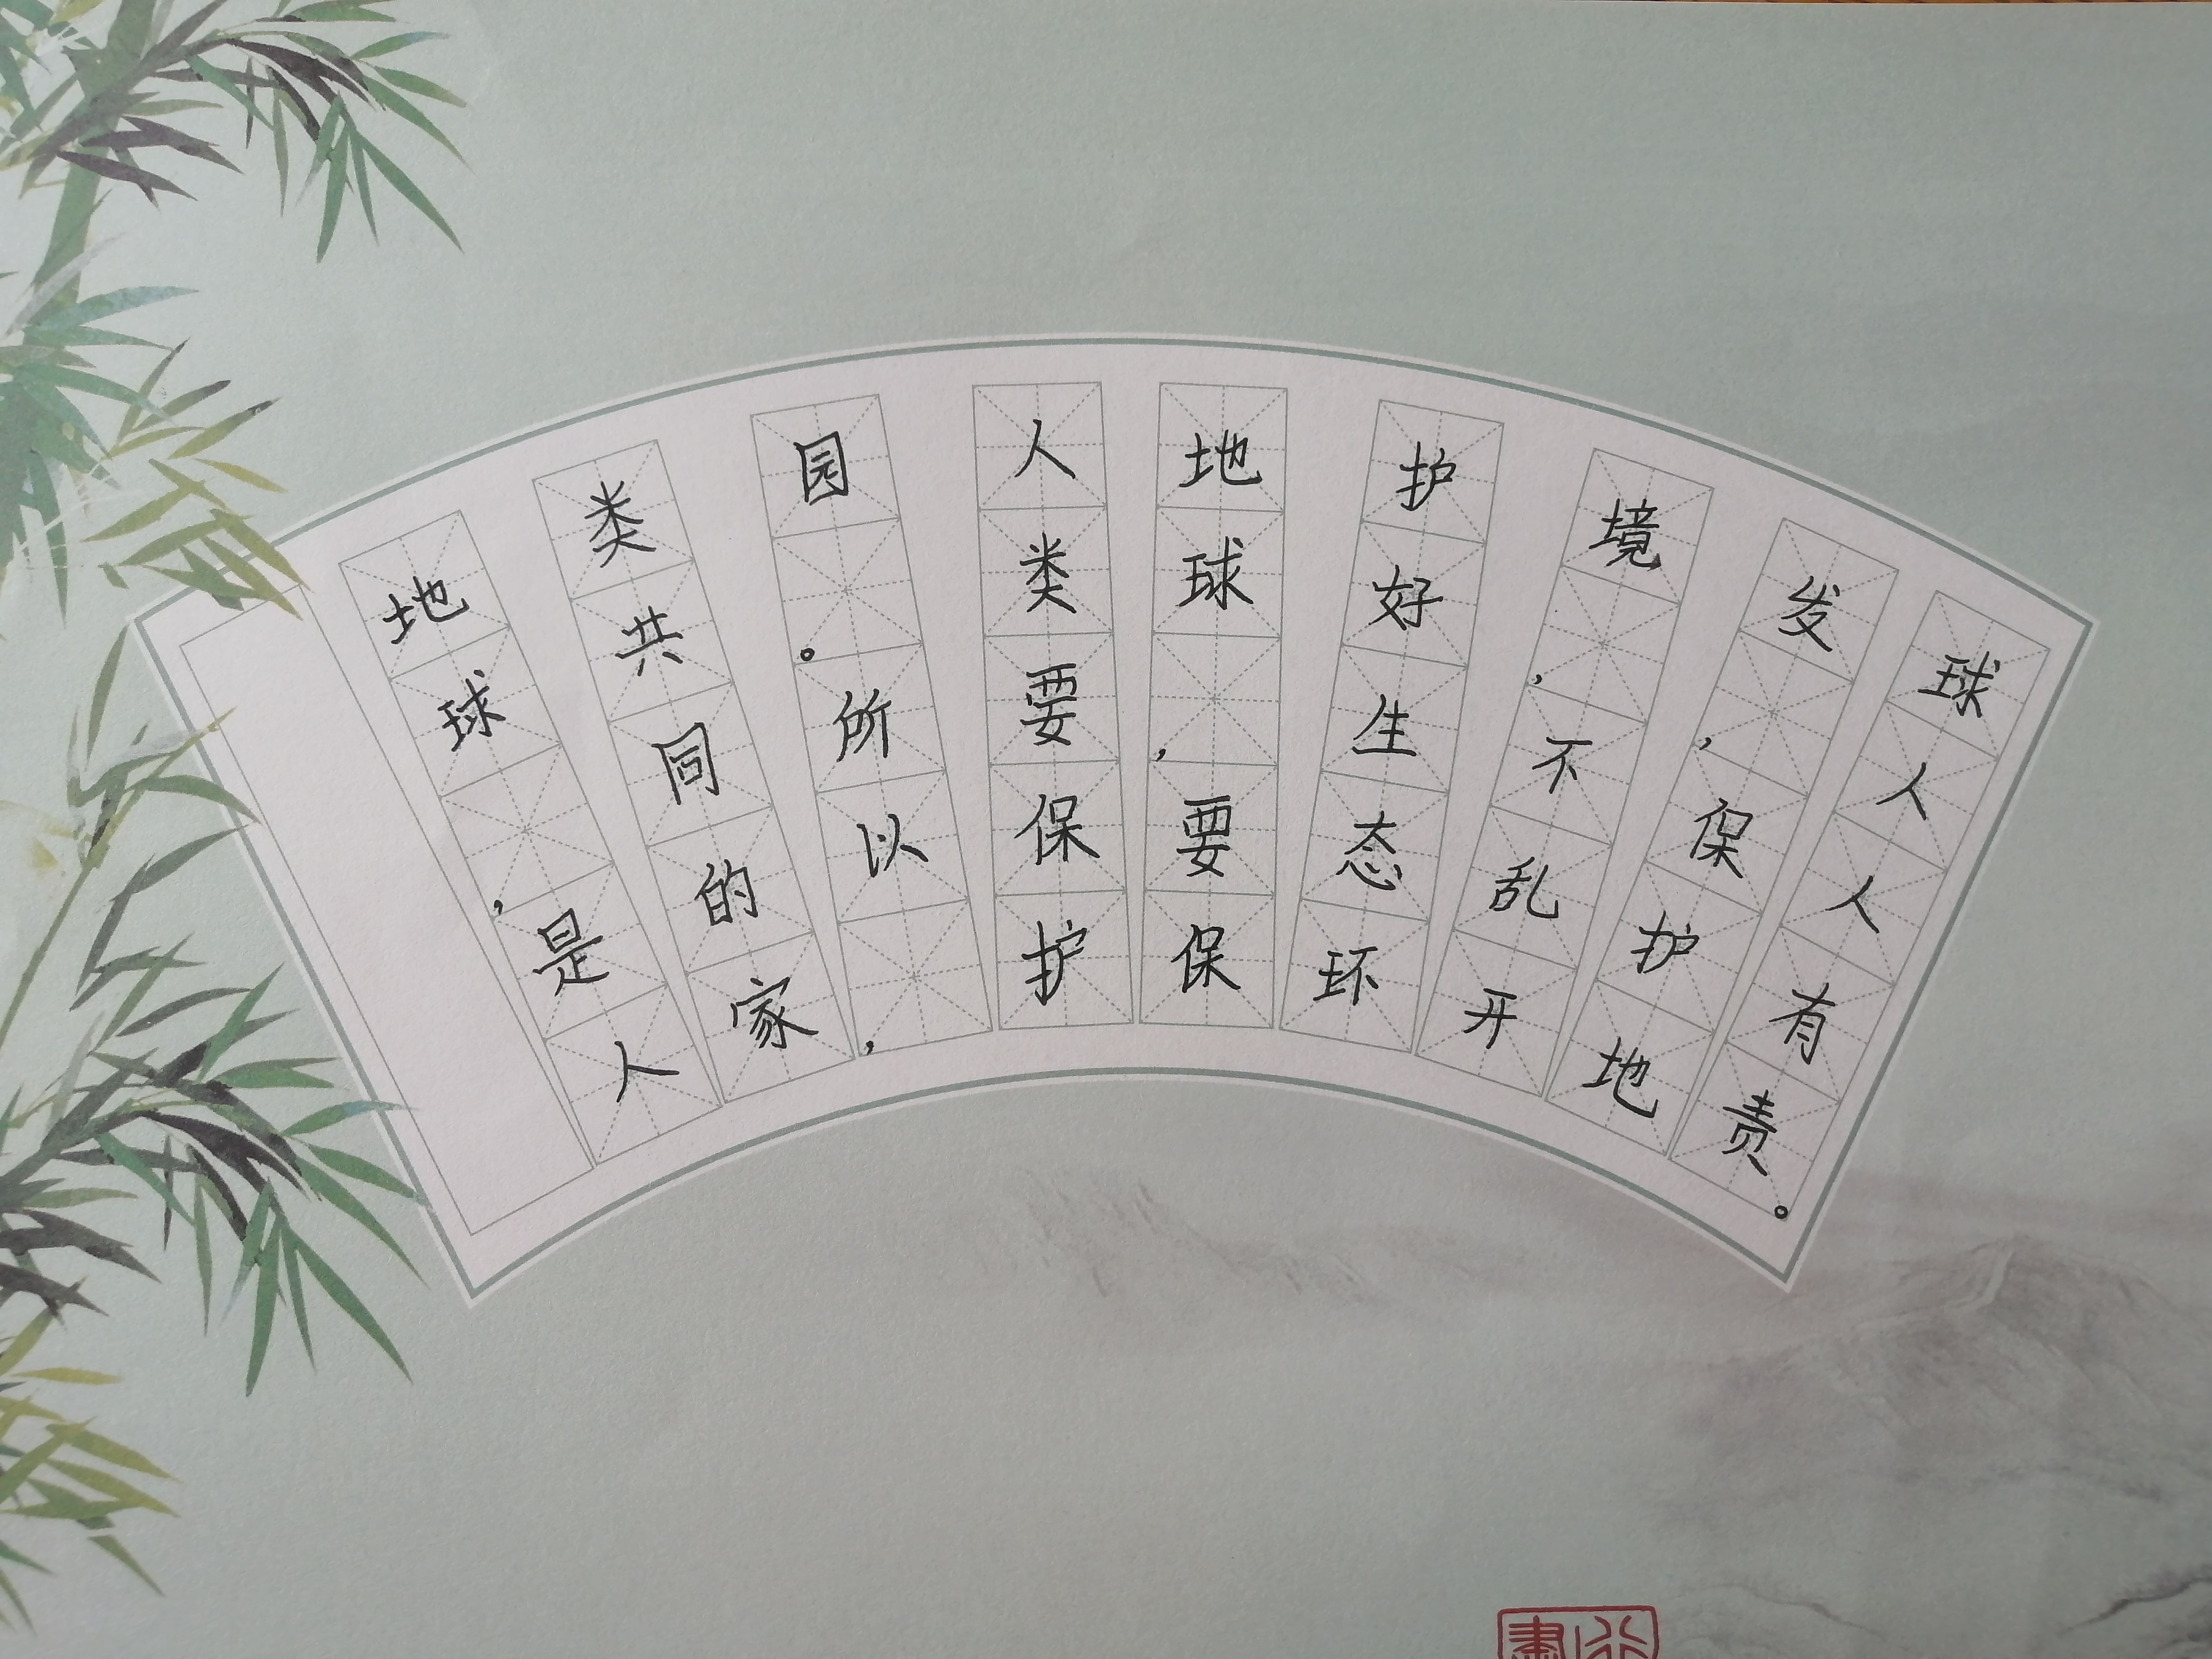 地球,是人
类共同的家
园。所以,
人类要保护
地球,要保
护好生态环
境,不乱开
发,保护地
球人人有责。